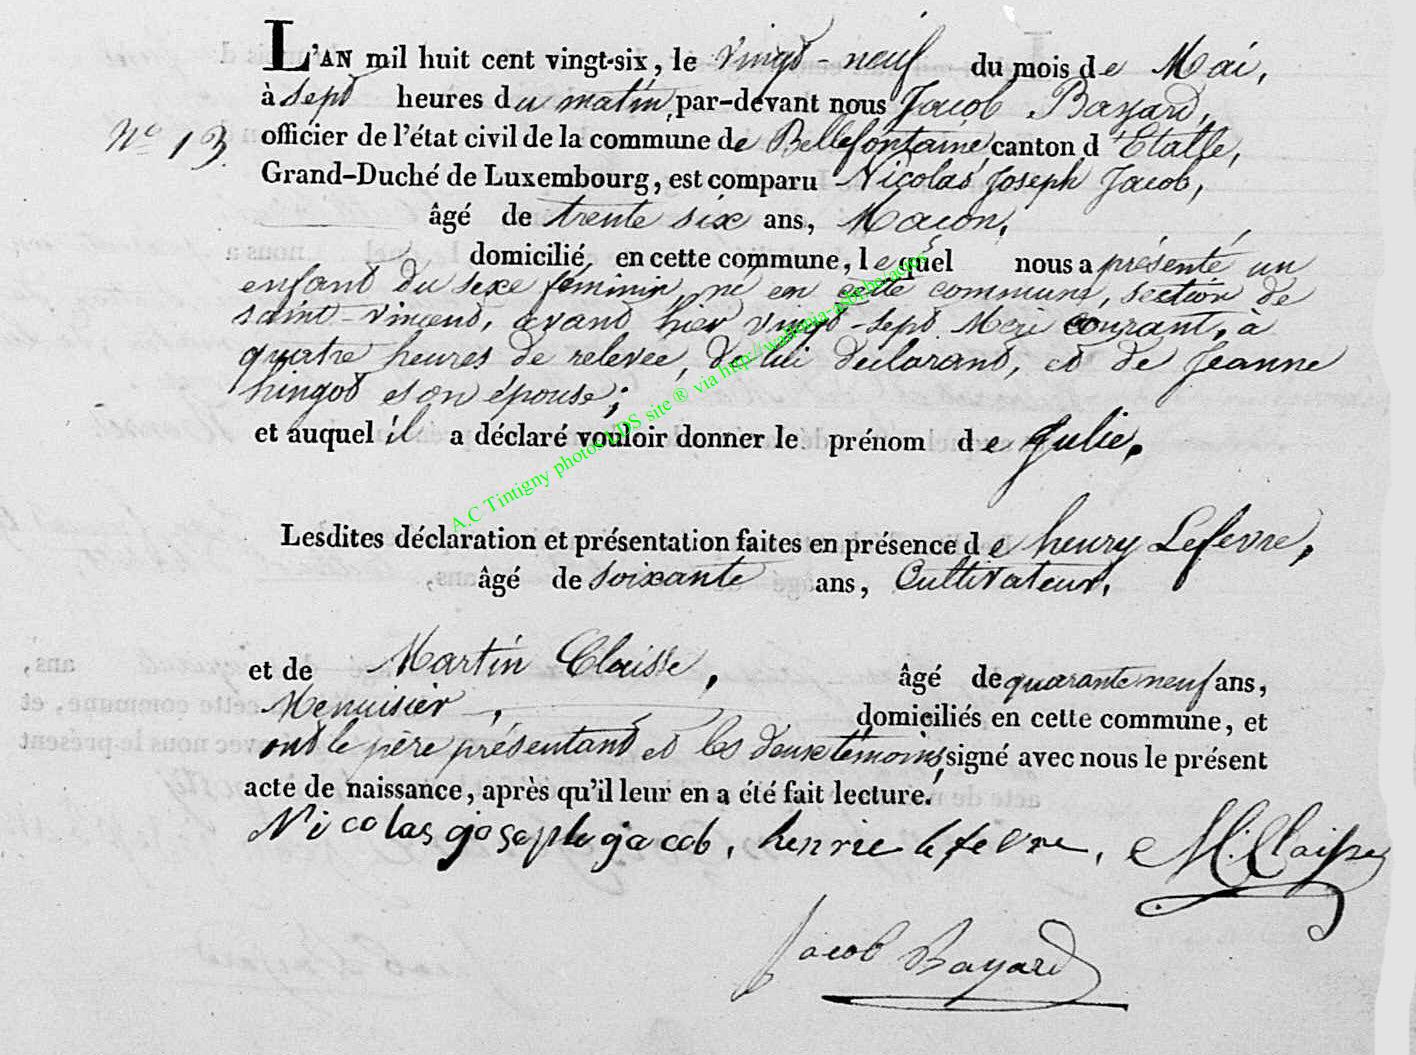 L'AN mil huit cent vingt-six, le vingt-neuf du mois de Mai,
à sept heures du matin, par-devant nous Jacob Bayard,
N° 13.
officier de l'état civil de la commune de Bellefontaine, canton d'Etalle,
Grand-Duché de Luxembourg, est comparu Nicolas Joseph Jacob,
âgé de trente six ans, Maçon,
domicilié en cette commune, lequel nous a présenté un
enfant du sexe féminin, né en cette commune, section de
saint-vincent, avant hier vingt-sept Mai courant, à
quatre heures de relevée, de lui déclarant, et de Jeanne
hingot son épouse;
et auquel il a déclaré vouloir donner le prénom de Julie.
A.C Tintigny photos LDS site ® via http://wallonia-asbl.be/actes
Lesdites déclaration et présentation faites en présence de henry Lefevre,
âgé de soixante ans, Cultivateur,
et de Martin Claisse, âgé de quarante neuf ans,
Menuisier, domiciliés en cette commune, et
ont le père présentant et les deux témoins, signé avec nous le présent
acte de naissance, après qu'il leur en a été fait lecture.
Nicolas joseph jacob, henrie lefevre, M. Claisse
Jacob Bayard